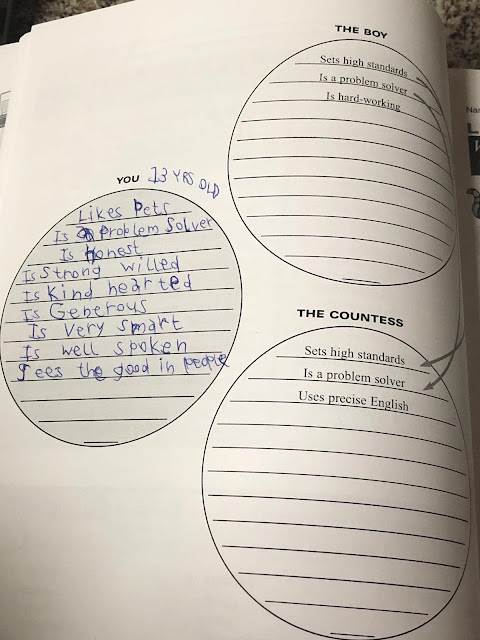 THE BOY
Sets high standards
Is a problem solver
Is hard-working
YOU 13 YRS OLD
Likes Pets
Is a Problem Solver
Is honest
Is Strong willed
Is Kind hearted
Is Generous
Is Very Smart
Is well spoken
Sees the good in people
THE COUNTESS
Sets high standards
Is a problem solver
Uses precise English